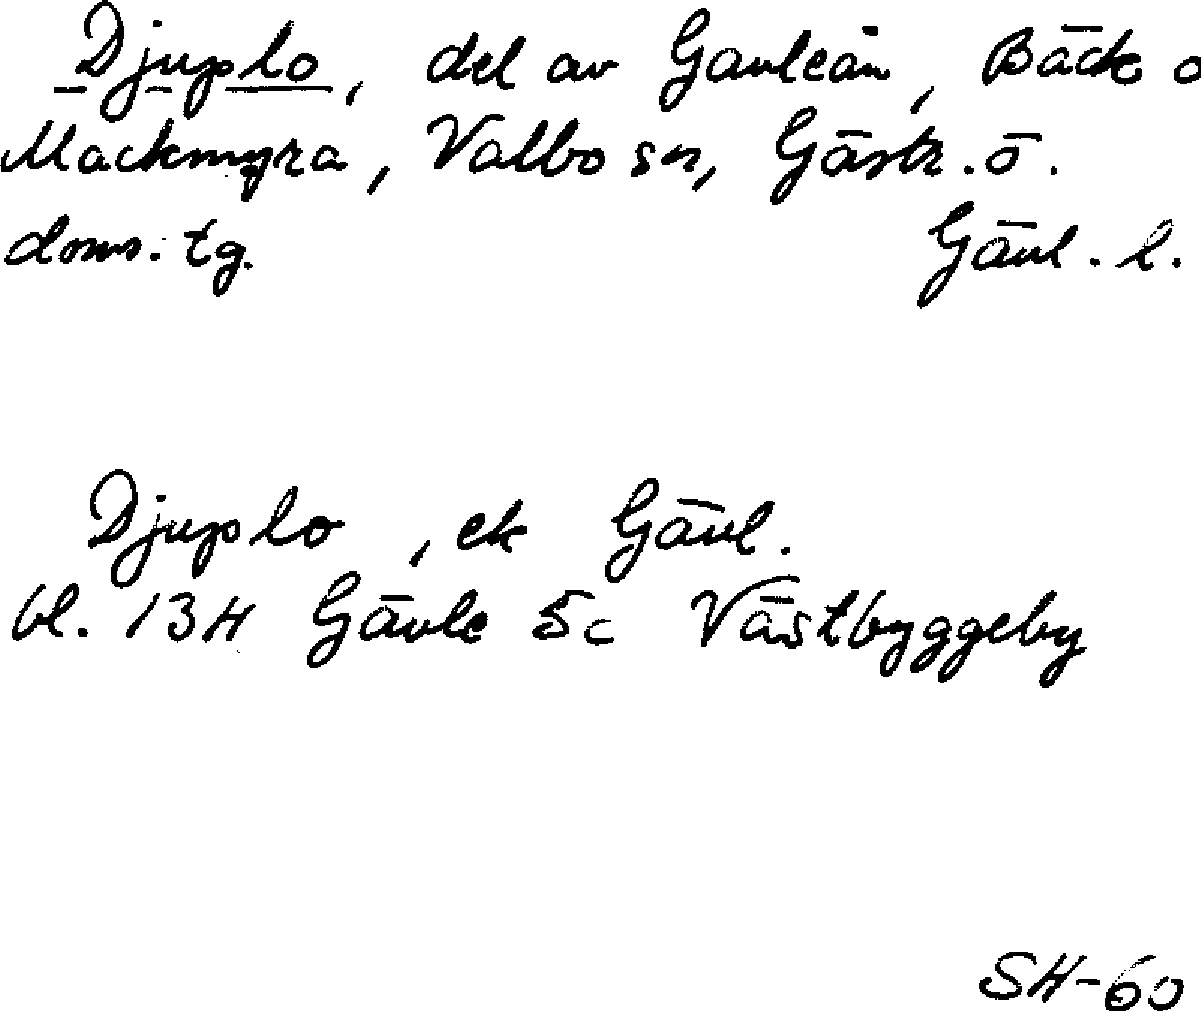 Djuplo, del av Gavleån, Bäck o
Mackmyra, Valbo sn, Gästr. ö.
doms. tg. Gävl. l.
Djuplo, ek Gävl.
bl. 13H Gävle 5c Västbyggeby
SH-60